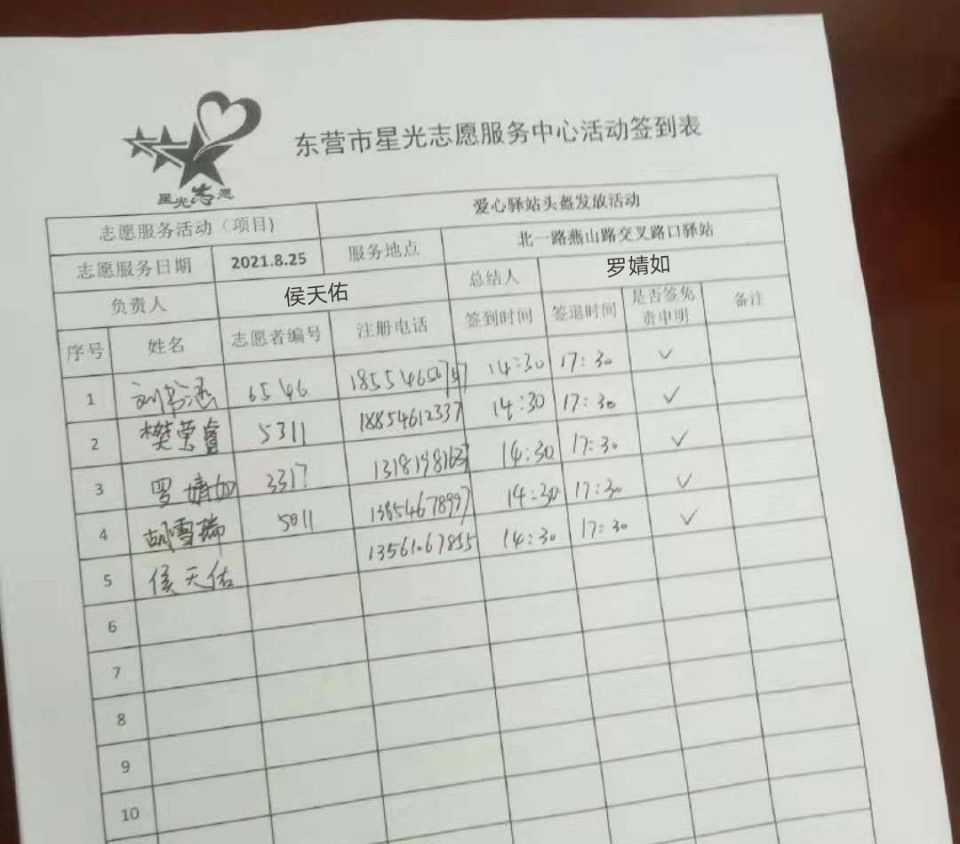 星光志愿
东营市星光志愿服务中心活动签到表
志愿服务活动（项目） 爱心驿站头盔发放活动
志愿服务日期 2021.8.25 服务地点 北一路燕山路交叉路口驿站
负责人 侯天佑 总结人 罗婧如
序号 姓名 志愿者编号 注册电话 签到时间 签退时间 是否签免责申明 备注
1 刘书涵 6546 14:30 17:30 ✓
2 樊荣睿 5311 18854612337 14:30 17:30 ✓
3 罗婧如 3317 14:30 17:30 ✓
4 胡雪瑞 5011 13854678997 14:30 17:30 ✓
5 侯天佑 13561067855 14:30 17:30 ✓
6
7
8
9
10